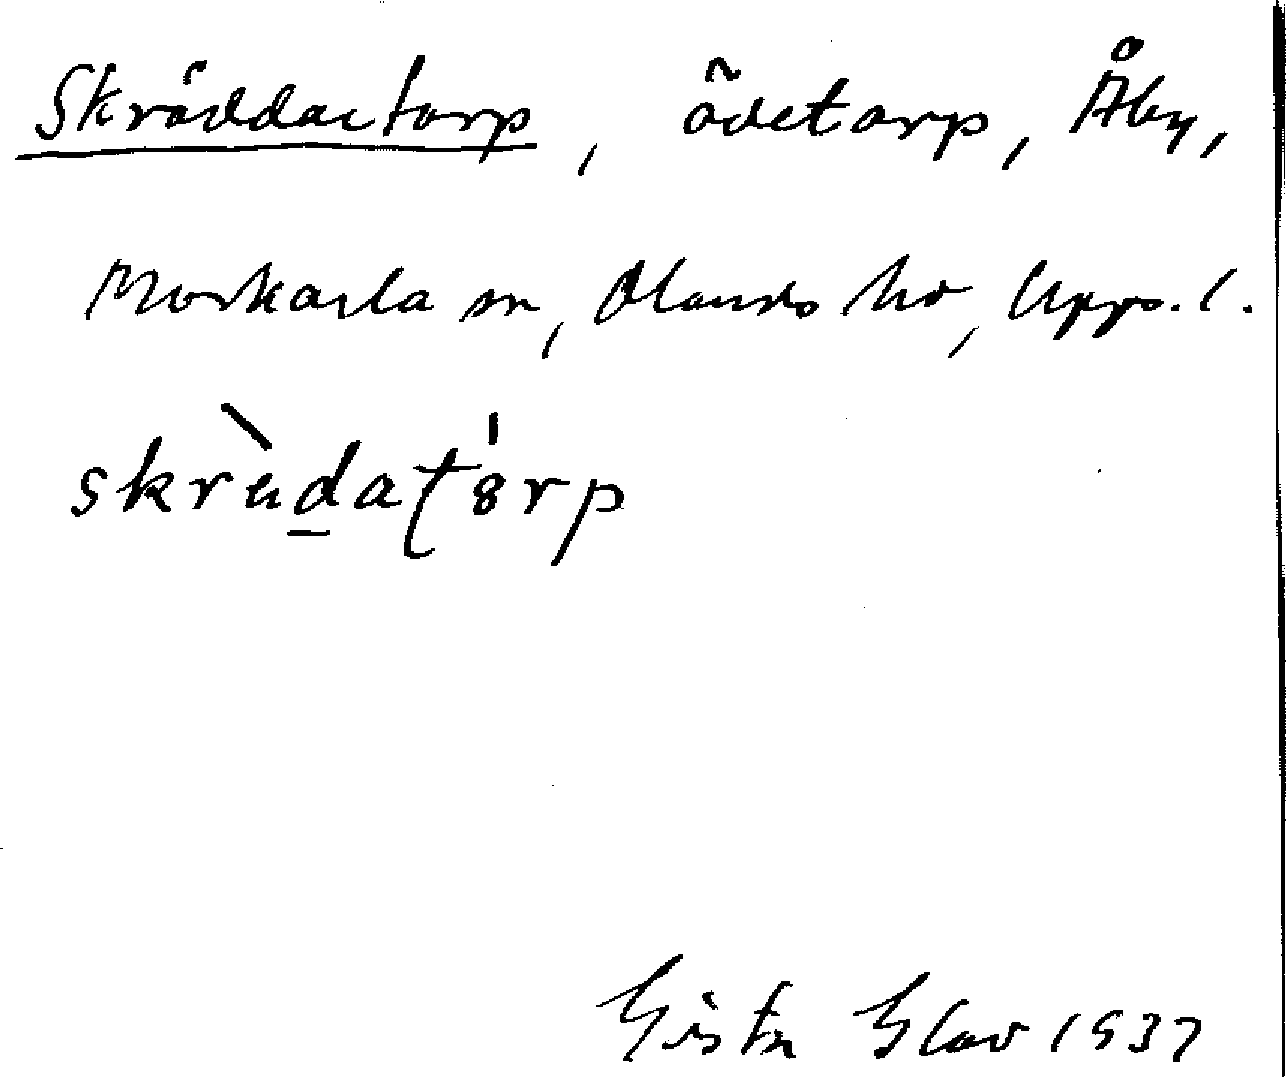 Skräddartorp, ödetorp, Åby,
Morkarla sn, Olands hd, Upps. l.
skrὰ̀da
Gösta 1937